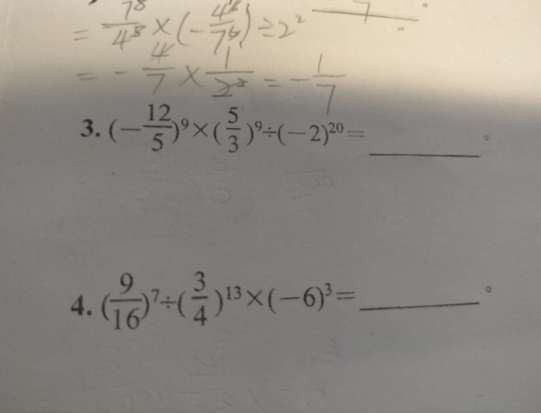 = 7⁸/4⁸ × (- 4⁶/7⁶) ÷ 2² 7
= - 4/7 × 1/2² = - 1/7
3. (-12/5)⁹×(5/3)⁹÷(-2)²⁰=______。
4. (9/16)⁷÷(3/4)¹³×(-6)³=______。